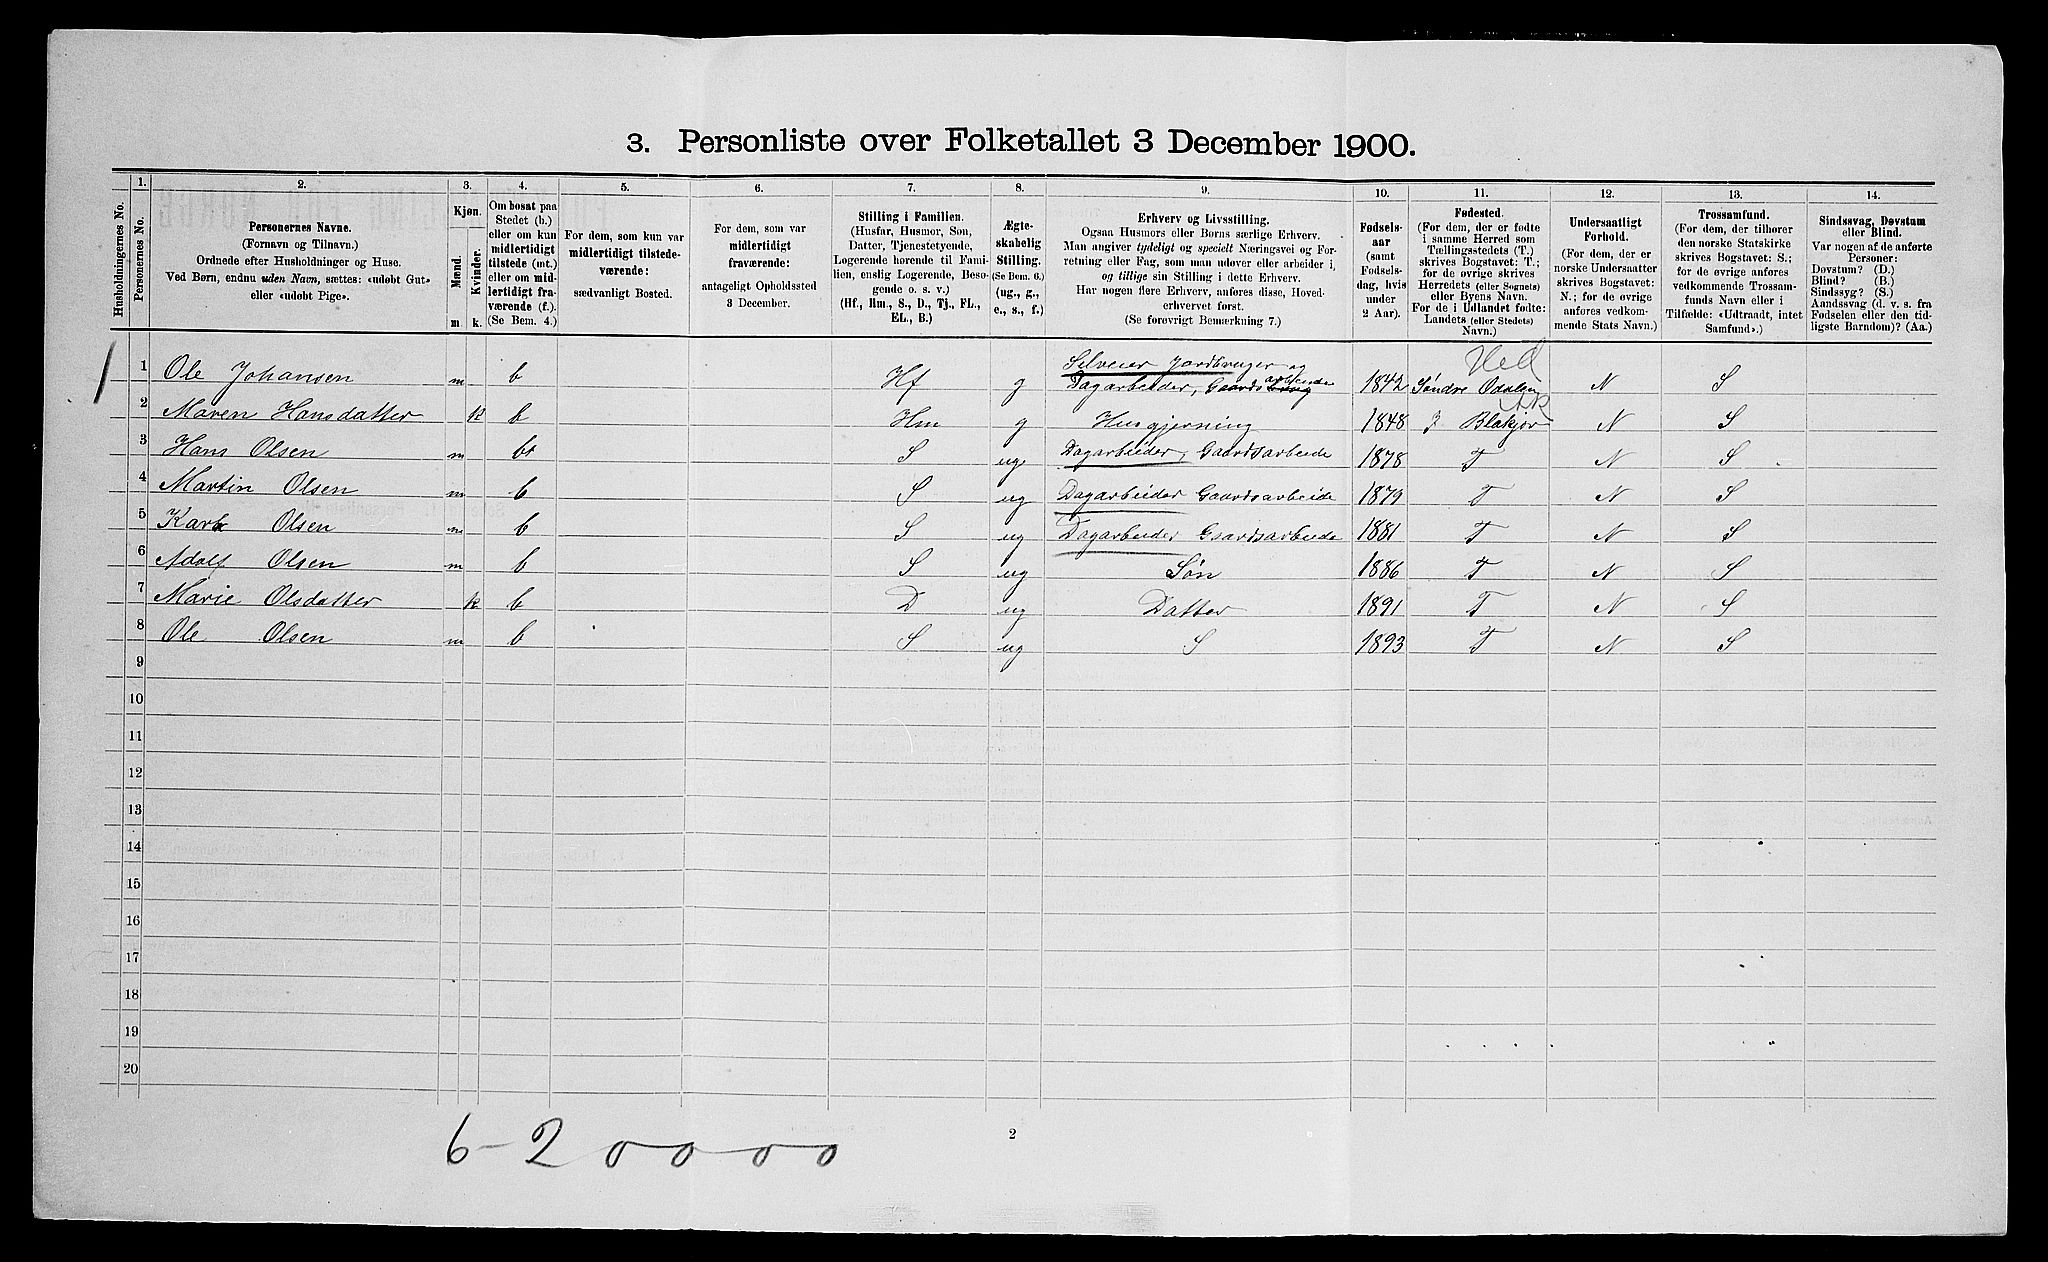 3. Personliste over Folketallet 3 December 1900.
Husholdningernes No.
1.
Personernes No.
2.
Personernes Navne.
(Fornavn og Tilnavn.)
Ordnede efter Husholdninger og Huse.
Ved Børn, endnu uden Navn, sættes: «udøbt Gut»
eller «udøbt Pige».
3.
Kjøn.
Mænd.
Kvinder.
m.
k.
4.
Om bosat paa
Stedet (b.)
eller om kun
midlertidigt
tilstede (mt.)
eller om mid-
lertidigt fra-
værende (f.)
(Se Bem. 4.)
5.
For dem, som kun var
midlertidigt tilstede-
værende:
sædvanligt Bosted.
6.
For dem, som var
midlertidigt
fraværende:
antageligt Opholdssted
3 December.
7.
Stilling i Familien.
(Husfar, Husmor, Søn,
Datter, Tjenestetyende,
Logerende hørende til Fami-
lien, enslig Logerende, Besø-
gende o. s. v.)
(Hf., Hm., S., D., Tj., FL.,
EL., B.)
8.
Ægte-
skabelig
Stilling.
(Se Bem. 6.)
(ug., g.,
e., s., f.)
9.
Erhverv og Livsstilling.
Ogsaa Husmors eller Børns særlige Erhverv.
Man angiver tydeligt og specielt Næringsvei og For-
retning eller Fag, som man udøver eller arbeider i,
og tillige sin Stilling i dette Erhverv.
Har nogen flere Erhverv, anføres disse, Hoved-
erhvervet først.
(Se forøvrigt Bemærkning 7.)
10.
Fødsels-
aar
(samt
Fødsels-
dag, hvis
under
2 Aar).
11.
Fødested.
(For dem, der er fødte
i samme Herred som
Tællingsstedets (T.)
skrives Bogstavet: T.;
for de øvrige skrives
Herredets (eller Sognets)
eller Byens Navn.
For de i Udlandet fødte:
Landets (eller Stedets)
Navn.)
12.
Undersaatligt
Forhold.
(For dem, der er
norske Undersaatter
skrives Bogstavet:
N.; for de øvrige
anføres vedkom-
mende Stats Navn.)
13.
Trossamfund.
(For dem, der tilhører
den norske Statskirke
skrives Bogstavet: S.;
for de øvrige anføres
vedkommende Trossam-
funds Navn eller i
Tilfælde: «Udtraadt, intet
Samfund».)
14.
Sindssvag, Døvstum
eller Blind.
Var nogen af de anførte
Personer:
Døvstum? (D.)
Blind? (B.)
Sindssyg? (S.)
Aandssvag (d. v. s. fra
Fødselen eller den tid-
ligste Barndom)? (Aa.)
Hed
Selveier Jordbruger og
1 1 Ole Johansen m b Hf g Dagarbeider, Gaardsarbeide 1842 Søndre Odalen N S
Ak
2 Maren Hansdatter k b Hm g Husgjerning 1848 Blakjer N S
3 Hans Olsen m b S ug Dagarbeider, Gaardsarbeide 1878 T N S
4 Martin Olsen m b S ug Dagarbeider Gaardsarbeide 1879 T N S
5 Karl Olsen m b S ug Dagarbeider Gaardsarbeide 1881 T N S
6 Adolf Olsen m b S ug Søn 1886 T N S
7 Marie Olsdatter k b D ug Datter 1891 T N S
8 Ole Olsen m b S ug S 1893 T N S
9
10
11
12
13
14
15
16
17
18
19
20
6-20000
2